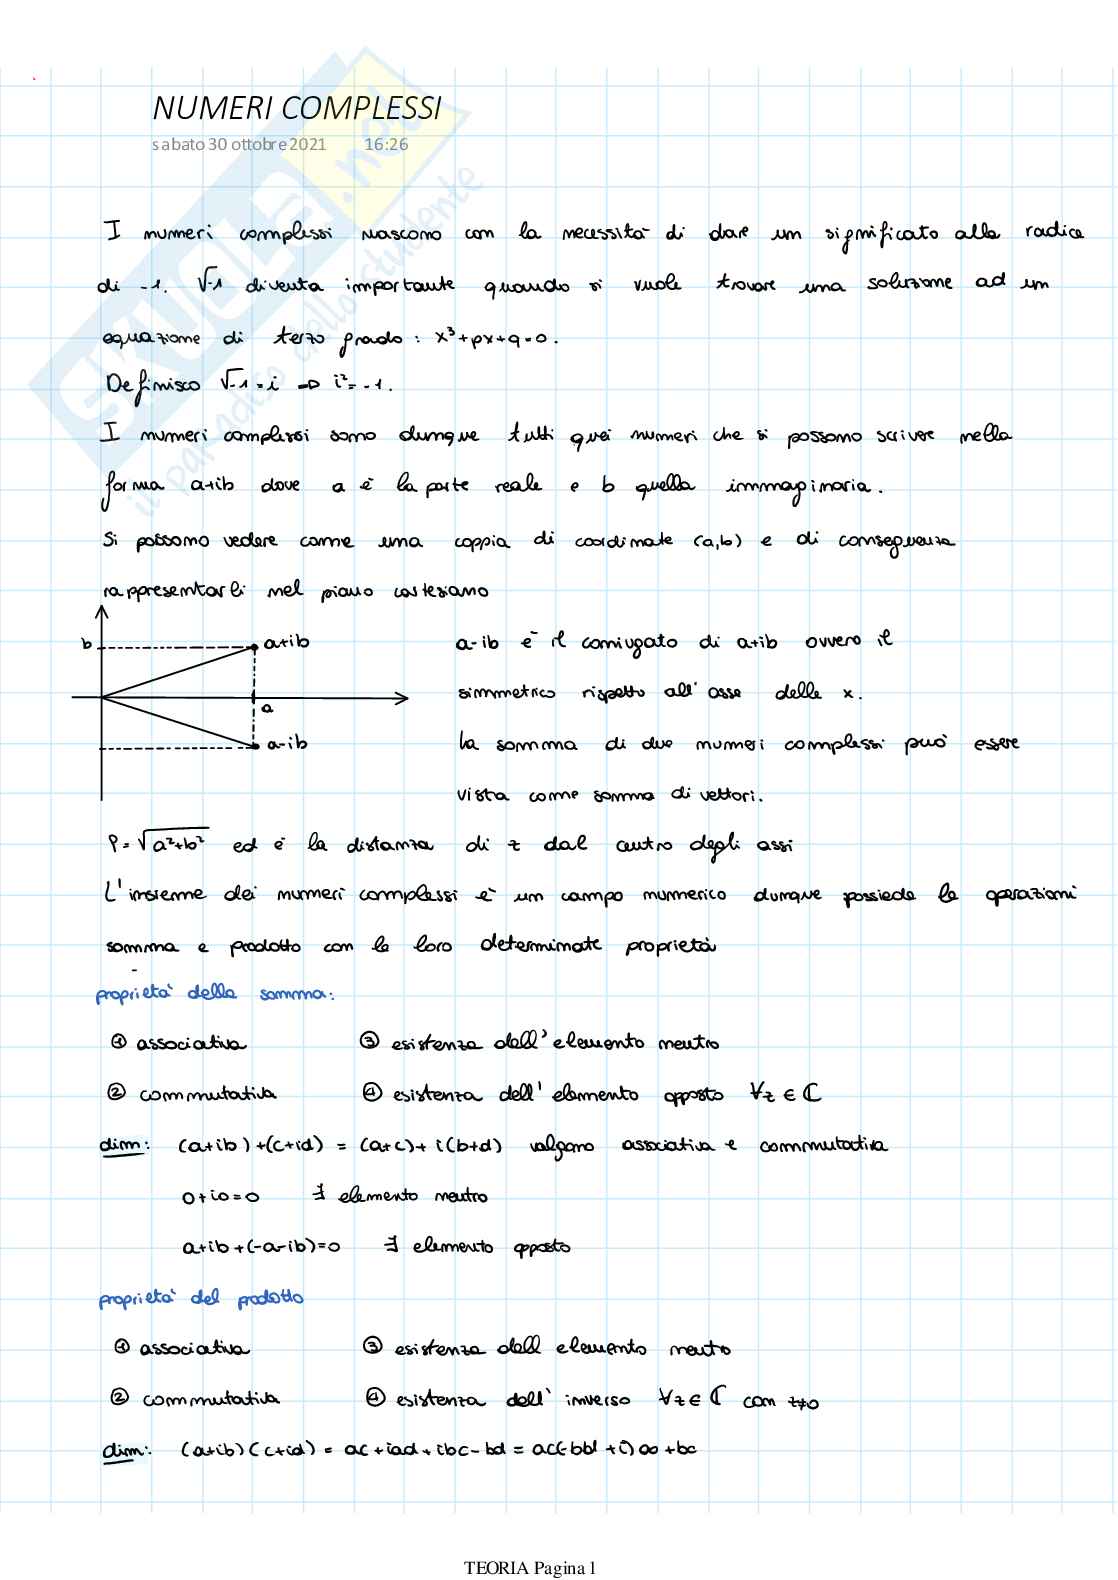 NUMERI COMPLESSI
sabato 30 ottobre 2021 16:26
SKUOLA.net
il paradiso dello studente
I numeri complessi nascono con la necessità di dare un significato alla radice
di -1. √-1 diventa importante quando si vuole trovare una soluzione ad un
equazione di terzo grado: x³+px+q=0.
Definisco √-1=i ⇒ i²=-1.
I numeri complessi sono dunque tutti quei numeri che si possono scrivere nella
forma a+ib dove a è la parte reale e b quella immaginaria.
Si possono vedere come una coppia di coordinate (a,b) e di conseguenza
rappresentarli nel piano cartesiano
b a+ib
a
a-ib
a-ib è il coniugato di a+ib ovvero il
simmetrico rispetto all'asse delle x.
la somma di due numeri complessi può essere
vista come somma di vettori.
ρ=√a²+b² ed è la distanza di z dal centro degli assi
L'insieme dei numeri complessi è un campo numerico dunque possiede le operazioni
somma e prodotto con le loro determinate proprietà
proprietà della somma:
① associativa ③ esistenza dell'elemento neutro
② commutativa ④ esistenza dell'elemento opposto ∀z∈ℂ
dim: (a+ib)+(c+id) = (a+c)+i(b+d) valgono associativa e commutativa
0+i0=0 ∃ elemento neutro
a+ib+(-a-ib)=0 ∃ elemento opposto
proprietà del prodotto
① associativa ③ esistenza dell elemento neutro
② commutativa ④ esistenza dell' inverso ∀z∈ℂ con z≠0
dim: (a+ib)(c+id) = ac+iad+ibc-bd =
TEORIA Pagina 1